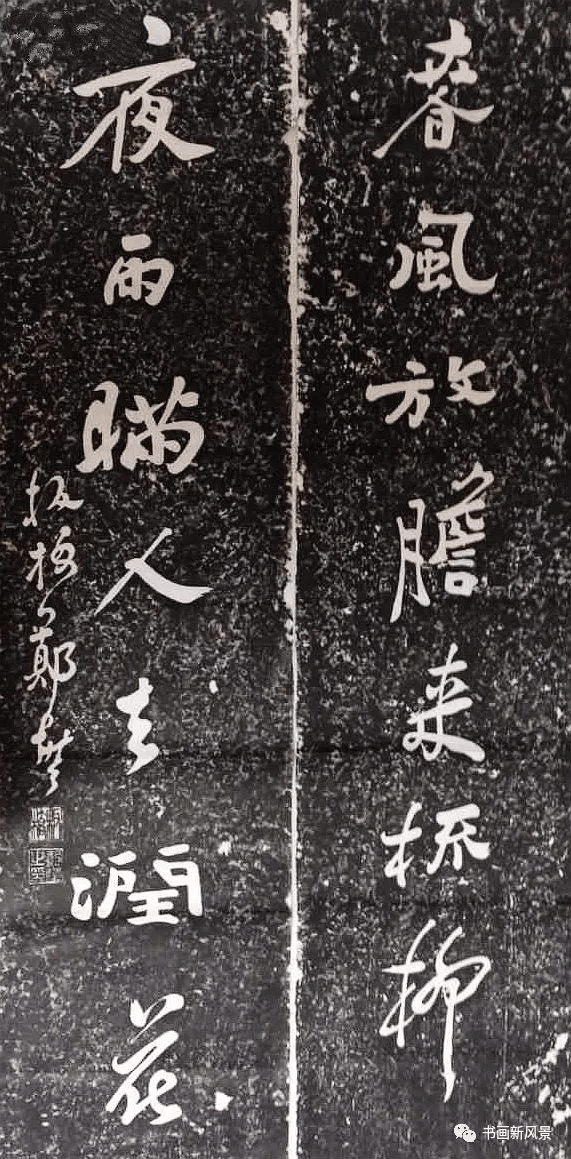 春風放膽来梳柳
夜雨瞞人去潤花
板橋鄭燮
书画新风景